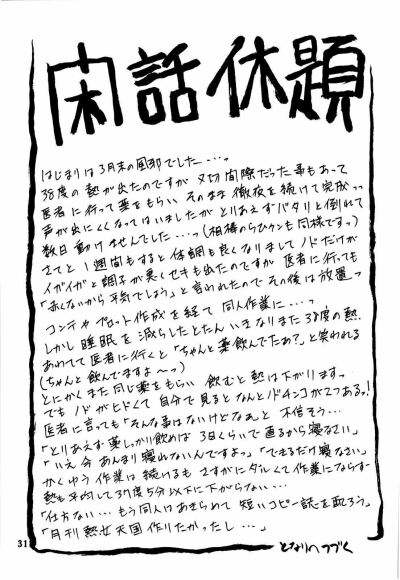 閑話休題
はじまりは3月末の風邪でした…っ
38度の熱が出たのですが〆切間際だった事もあって
医者に行って薬をもらい そのまま徹夜を続けて完成っっ
声が出にくくなってはいましたが とりあえずバタリと倒れて
数日動けませんでした…っ(相棒のらむりんも同様ですっ)
さてと 1週間もすると体調も良くなりまして ノドだけが
イガイガと調子が悪くセキも出たのですが 医者に行っても
「赤くないから平気でしょう」と言われたので その後は放置っ
コンテやプロット作成を経て 同人作業に…っ
しかし睡眠を減らしたとたん いきなりまた38度の熱
あわてて医者に行くと「ちゃんと薬飲んでたあ?」と笑われる
(ちゃんと飲んでますよ〜っ)
とにかくまた同じ薬をもらい 飲むと熱は下がりますっ
でも ノドがヒドくて自分で見ると なんとノドチンコが2つあるっ!
医者に言っても「そんな事はないけどなぁ」と不信そう…
「とりあえず薬しっかり飲めば 3日くらいで直るから寝なさい」
「いえ 今あんまり寝れないんですよっ」「できるだけ寝なさい」
かくゆう作業は続けるも さすがにダルくて作業にならず
熱も平均して37度5分以下に下がらない…
「仕方ない…もう同人はあきらめて 短いコピー誌を配ろう」
「月刊熱女天国作りたかったし…」
となりへつづく
31